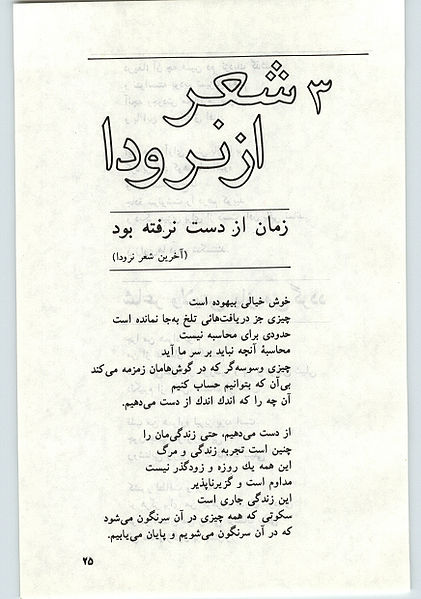 ۳ شعر
از نرودا
زمان از دست نرفته بود
(آخرین شعر نرودا)
خوش خیالی بیهوده است
چیزی جز دریافت‌هائی تلخ به‌جا نمانده است
حدودی برای محاسبه نیست
محاسبهٔ آنچه نباید بر سر ما آید
چیزی وسوسه‌گر که در گوش‌هامان زمزمه می‌کند
بی‌آن که بتوانیم حساب کنیم
آن چه را که اندك اندك از دست می‌دهیم.
از دست می‌دهیم، حتی زندگی‌مان را
چنین است تجربه زندگی و مرگ
این همه یك روزه و زودگذر نیست
مداوم است و گزیرناپذیر
این زندگی جاری است
سکوتی که همه چیزی در آن سرنگون می‌شود
که در آن سرنگون می‌شویم و پایان می‌یابیم.
۲۵